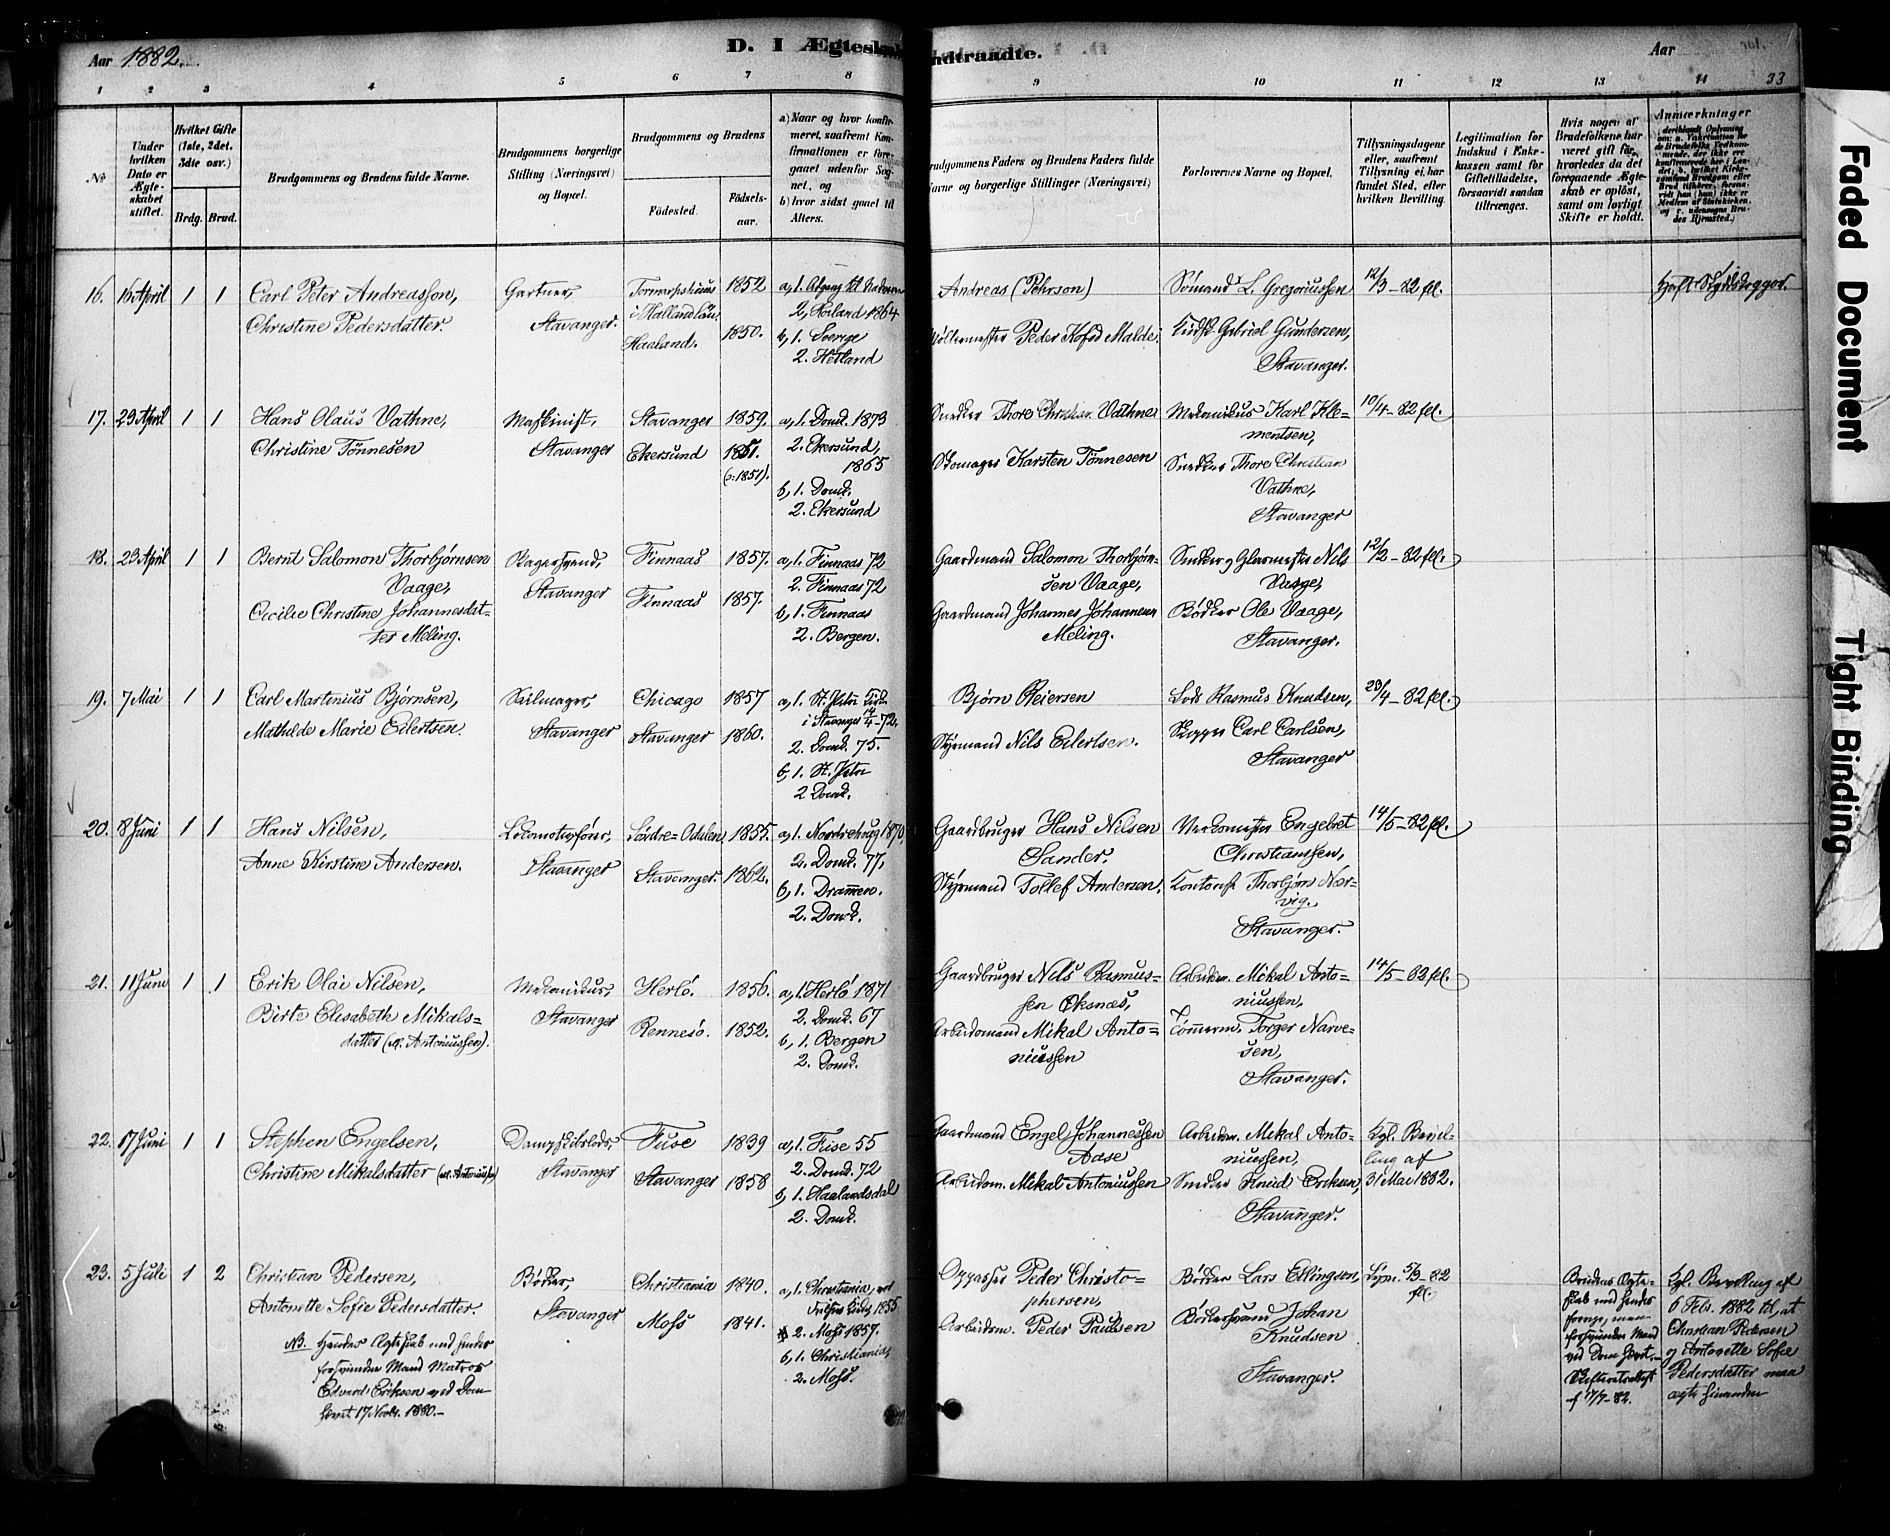 Aar 1882.
D. I Ægteskab Indtraadte.
Aar
33
1 2 3 4 5 6 7 8 9 10 11 12 13 14
No
Under hvilken Dato er Ægteskabet stiftet.
Hvilket Gifte (1ste, 2det. 3dte osv.)
Brdg. Brud.
Brudgommens og Brudens fulde Navne.
Brudgommens borgerlige Stilling (Næringsvei) og Bopæl.
Brudgommens og Brudens
Fødested.
Fødselsaar.
a) Naar og hvor konfirmeret, saafremt Konfirmationen er foregaaet udenfor Sognet, og
b) hvor sidst gaaet til Alters.
Brudgommens Faders og Brudens Faders fulde Navne og borgerlige Stillinger (Næringsvei)
Forlovernes Navne og Bopæl.
Tillysningsdagene eller, saafremt Tillysning ei har fundet Sted, efter hvilken Bevilling.
Legitimation for Indskud i Enkekassen samt for Giftetilladelse, forsaavidt saadan tiltrænges.
Hvis nogen af Brudefolkene har været gift før, hvorledes da det foregaaende Ægteskab er opløst, samt om lovligt Skifte er holdt.
Anmærkninger
16. 16 April 1 1
Carl Peter Andreasson,
Christine Pedersdatter.
Gartner,
Stavanger.
i Halland Län
Haaland.
1852
1850.
2, Høiland 1864
b, 1. Sverige
2. Hetland
Andreas (Pehrson)
Møllermester Peder Kofod Malde.
Sømand L. Gregoriussen
Gabriel Gundersen,
Stavanger.
12/3-82 fl.
17. 23 April 1 1
Hans Olaus Vathne,
Christine Tönnesen
Maskinist,
Stavanger
Stavanger
Ekersund
1859.
1851.
(o: 1851).
a, 1. Domk. 1873
2. Ekersund,
1865
b, 1. Domk.
2. Ekersund
Snedker Thore Christian Vathne
Skomager Karsten Tönnesen
Mekanikus Karl Klementsen,
Snedker Thore Christian
Vathne,
Stavanger
10/4-82 fl.
18. 23 April 1 1
Bernt Salomon Thorbjørnsen
Vaage,
Cecilie Christine Johannesdatter Meling.
Bagersvend,
Stavanger
Finnaas
Finnaas
1857.
1857.
a, 1. Finnaas 72
2. Finnaas 72
b, 1. Finnaas
2. Bergen.
Gaardmand Salomon Thorbjørnsen Vaage,
Gaardmand Johannes Johannessen
Meling.
Snedker og Glarmester Nils
Vaage,
Bødker Ole Vaage,
Stavanger.
12/2-82 fl.
19. 7 Mai 1 1
Carl Martinius Bjørnsen,
Mathilde Marie Eilertsen.
Seilmager,
Stavanger
Chicago
Stavanger
1857
1860.
a, 1. St. Petri Kirke
i Stavanger 14/4-72,
2. Domk. 75.
b, 1. St. Petri
2 Domk.
Bjørn Reiersen
Styrmand Nils Eilertsen.
Lods Rasmus Knudsen,
Skipper Carl Carlsen,
Stavanger
23/4-82 fl.
20. 8 Juni 1 1
Hans Nilsen,
Anne Kirstine Andersen.
Lokomotivfører,
Stavanger
Søndre-Odalen
Stavanger.
1855.
1862.
a, 1. Norderhug 1870,
2. Domk. 77,
b, 1. Drammen.
2. Domk.
Gaardbruger Hans Nilsen
Sander.
Styrmand Tollef Andersen.
Værkmester Engebret
Christianssen,
Kontorist Thorbjørn Nærvig.
Stavanger.
14/5-82 fl.
21. 11 Juni 1 1
Erik Olai Nilsen,
Birte Elisabeth Mikalsdatter (al. Antoniussen).
Mekanikus,
Stavanger
Herlö.
Rennesö.
1856.
1852.
a, 1. Herlö 1871
2. Domk. 67
b, 1. Bergen
2. Domk.
Gaardbruger Nils Rasmussen Øksnæs,
Arbeidsmand Mikal Antoniussen
Arbeidsm. Mikal Antoniussen,
Tömmerm. Torger Narvesen,
Stavanger.
14/5-82 fl.
22. 17 Juni 1 1
Stephen Engelsen,
Christine Mikalsdatter (al. Antoniussen)
Dampskibslods,
Stavanger
Fuse
Stavanger
1839
1858
a, 1. Fuse 55
2. Domk. 72
b, 1. Haalandsdal
2. Domk.
Gaardmand Engel Johannessen
Aase
Arbeidsm. Mikal Antoniussen
Arbeidsm. Mikal Antoniussen,
Snedker Knud Eriksen,
Stavanger.
Kgl. Bevilling af
31 Mai 1882.
23. 5 Juli 1 2
Christian Pedersen,
Antonette Sofie Pedersdatter.
NB. Hendes Ægteskab med hendes
forsvundne Mand Matros
Edvard Eriksen ved Dom
hævet 17 Novbr. 1880.-
Bødker,
Stavanger
Christiania
Moss
1840.
1841.
a, 1. Christiania, ved
1855
2. Moss 1857.
b, 1. Christiania,
2. Moss.
Oppasser Peder Christophersen,
Arbeidsm. Peder Paulsen
Bødker Lars Ellingsen,
Bødkersvend Johan
Knudsen
Stavanger.
Lysn. 5/3-82
fl.
Brudens Ægteskab med hendes
forrige, men
forsvundne Mand
ved Dom hævet.
Skifteretsattest
af 17/7-82.
Kgl. Bevilling af
6 Feb. 1882 til, at
Christian Pedersen
og Antonette Sofie
Pedersdatter maa
ægte hinanden
Faded Document
Tight Binding